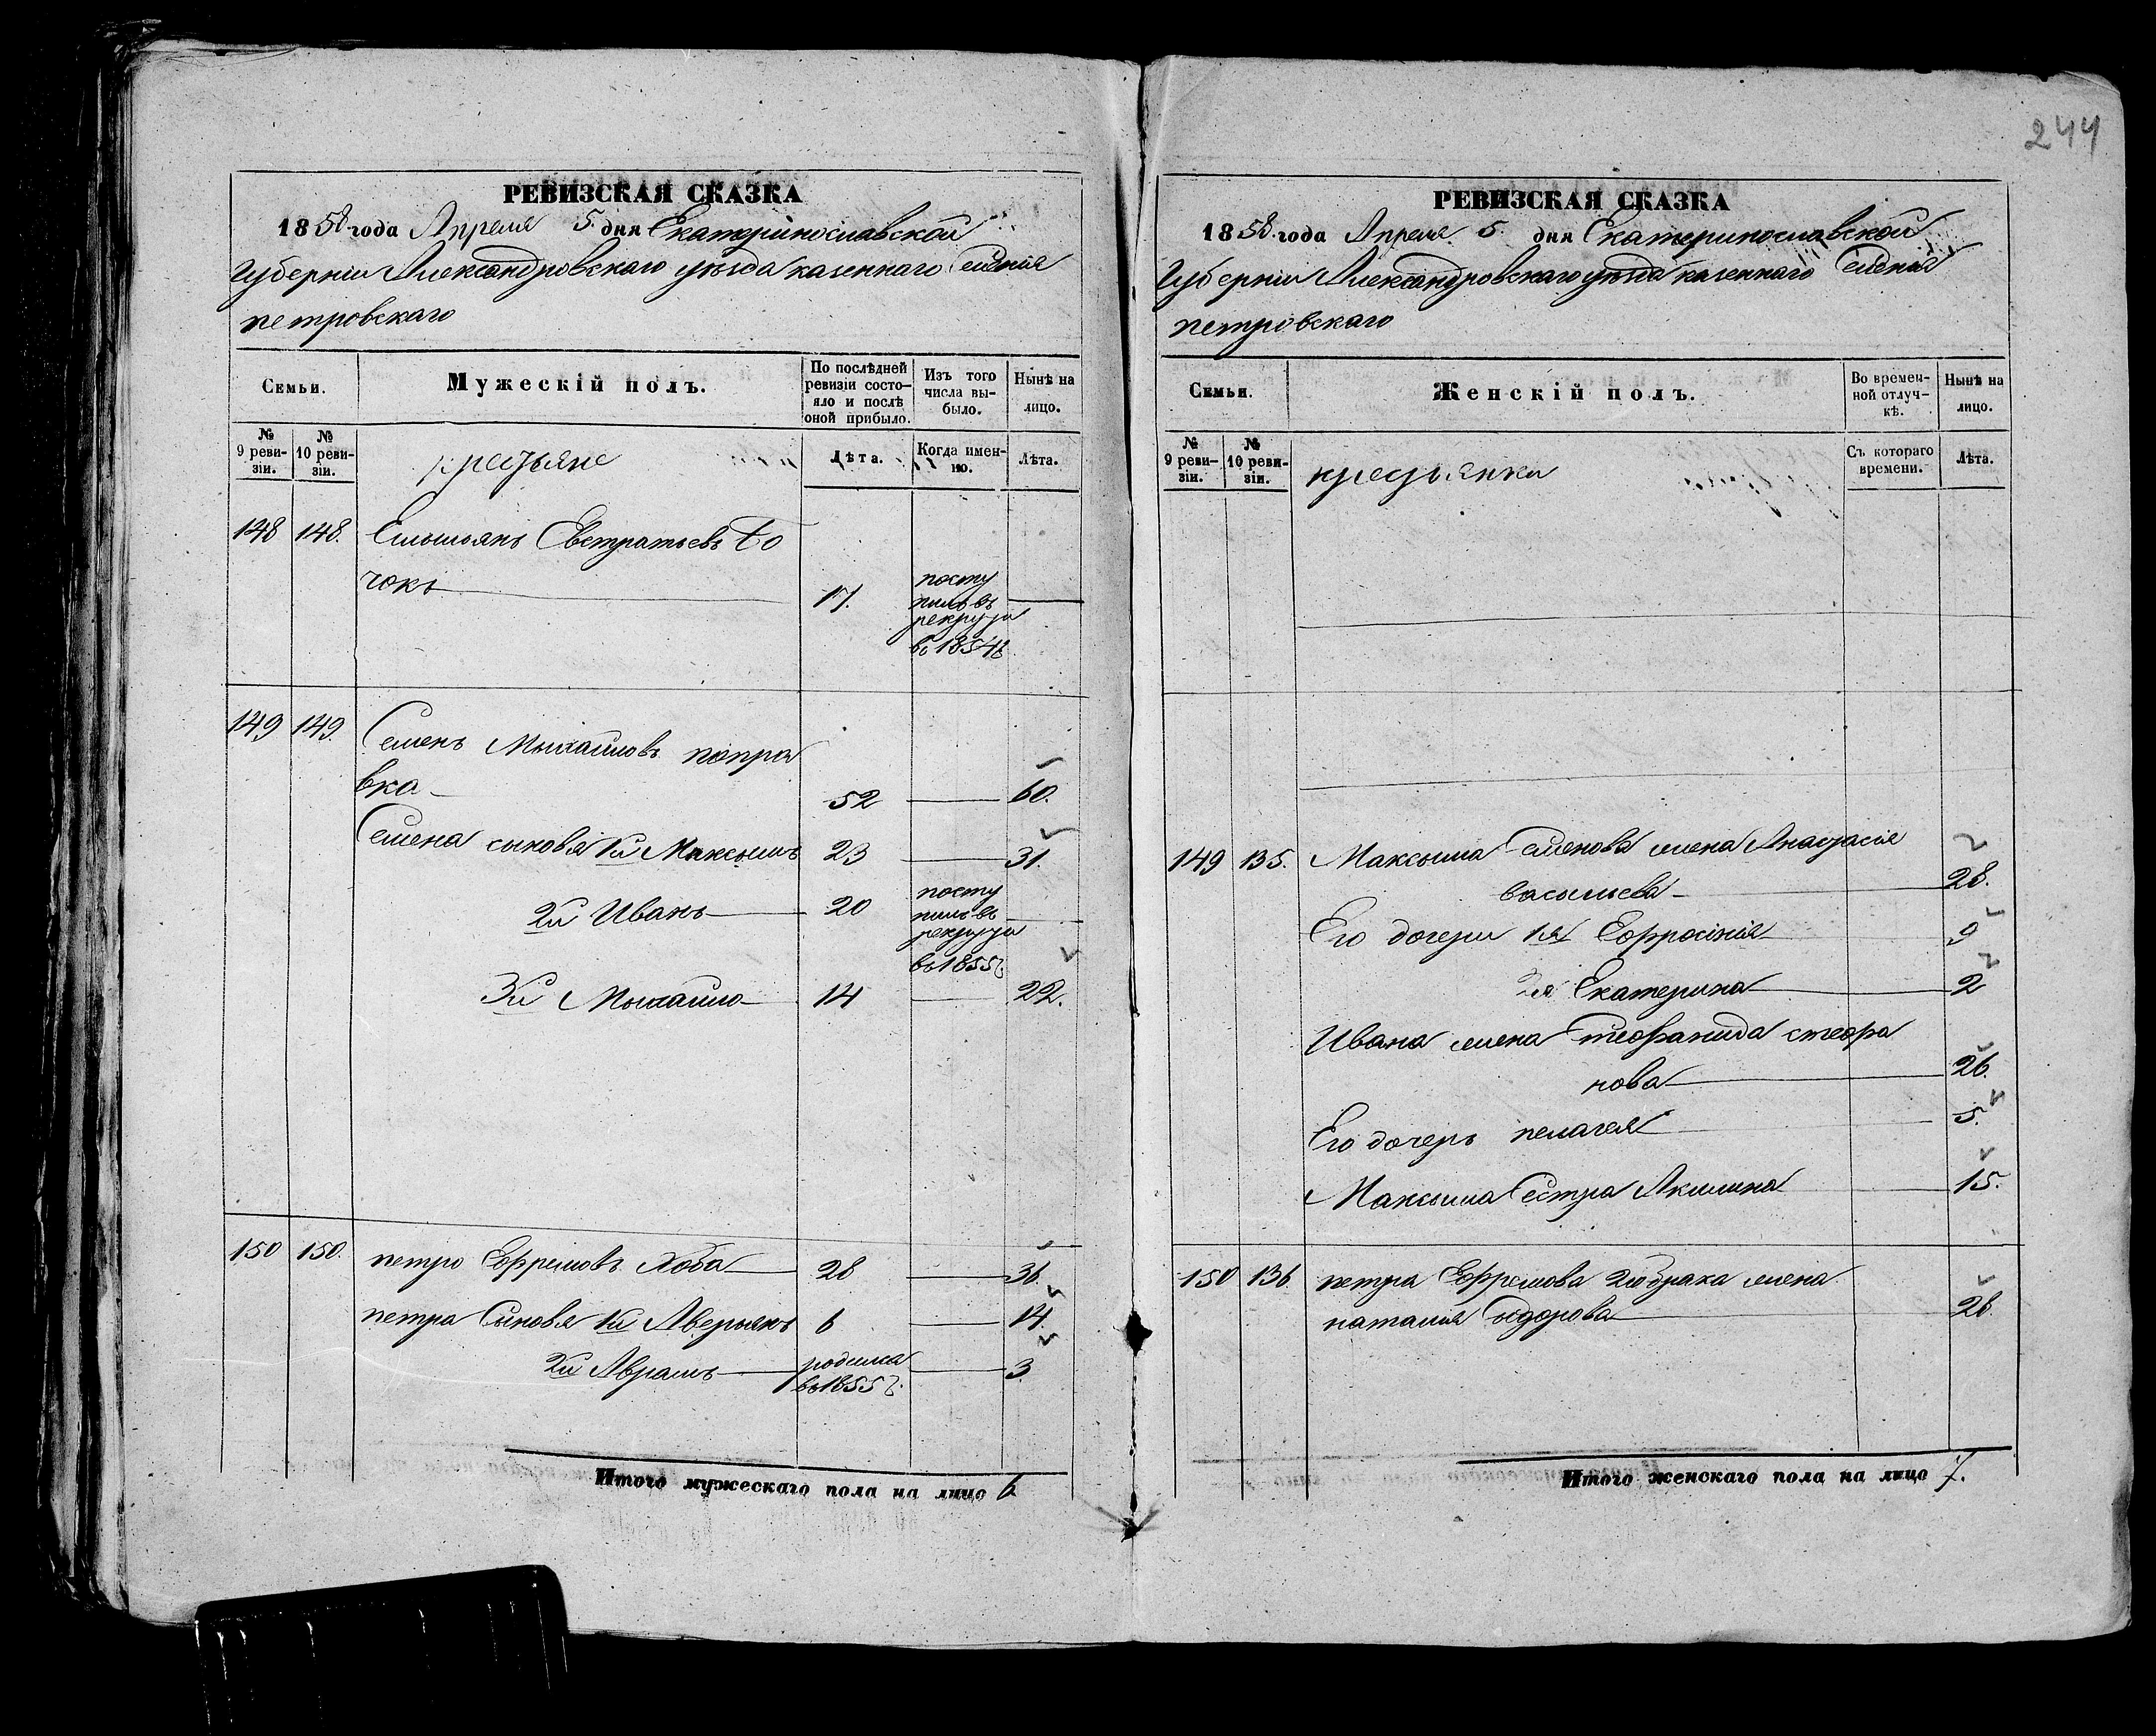 244
РЕВИЗСКАЯ СКАЗКА
1858 года Апреля 5 дня Екатеринославской
Губерніи Александровскаго уѣзда казеннаго Селенія
петровскаго
Семьи.
Мужескій полъ.
По послѣдней ревизіи состояло и послѣ оной прибыло.
Изъ того числа выбыло.
Нынѣ на лицо.
№ 9 ревизіи.
№ 10 ревизіи.
крестьяне
Лѣта.
Когда именно.
Лѣта.
148 148. Емельянъ Евстратьевъ Бо
чокъ 17. посту
пилъ въ
рекруты
въ 1854 г.
149 149. Семенъ Михайловъ попра
вка 52 60.
Семена сыновья 1й Максымъ 23 31.
2й Иванъ 20 посту
пилъ въ
рекруты
въ 1855 г.
3й Михайло 14 22.
150 150. петро Ефремовъ Хоба 28 36.
петра Сыновя 1й Аверьянъ 6 14.
2й Аврамъ родился 3
въ 1855 г.
Итого мужескаго пола на лицо 6
РЕВИЗСКАЯ СКАЗКА
1858 года Апреля 5 дня Екатеринославской
Губерніи Александровскаго уѣзда казеннаго Селенія
петровскаго
Семьи.
Женскій полъ.
Во временной отлучкѣ.
Нынѣ на лицо.
№ 9 ревизіи.
№ 10 ревизіи.
крестьянки
Съ котораго времени.
Лѣта.
149 135. Максыма Семенова жена Анастасія
васильева 28.
Его дочери 1я Ефросинія 9
2я Екатерина 2
Ивана жена Феофанида стефа
нова 26.
Его дочерь пелагея 5.
Максыма Сестра Акилина 15.
150 136 петра Ефремова 2го брака жена
наталия Сидорова 28.
Итого женскаго пола на лицо 7.